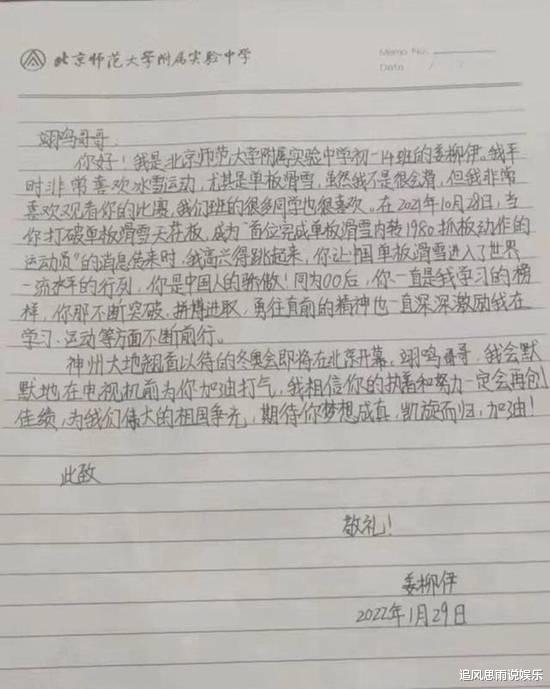 北京师范大学附属实验中学
Memo No.
Date / /
翊鸣哥哥：
你好！我是北京师范大学附属实验中学初一14班的姜柳伊。我平
时非常喜欢冰雪运动，尤其是单板滑雪，虽然我不是很会滑，但我非常
喜欢观看你的比赛，我们班的很多同学也很喜欢。在2021年10月28日，当
你打破单板滑雪天花板，成为“首位完成单板滑雪内转1980抓板动作的
运动员”的消息传来时，我高兴得跳起来，你让中国单板滑雪进入了世界
一流水平的行列，你是中国人的骄傲！同为00后，你一直是我学习的榜
样，你那不断突破、拼搏进取、勇往直前的精神也一直深深激励我在
学习、运动等方面不断前行。
神州大地翘首以待的冬奥会即将在北京开幕，翊鸣哥哥，我会默
默地在电视机前为你加油打气，我相信你的执着和努力一定会再创
佳绩，为我们伟大的祖国争光，期待你梦想成真，凯旋而归，加油！
此致
敬礼！
姜柳伊
2022年1月29日
追风思雨说娱乐